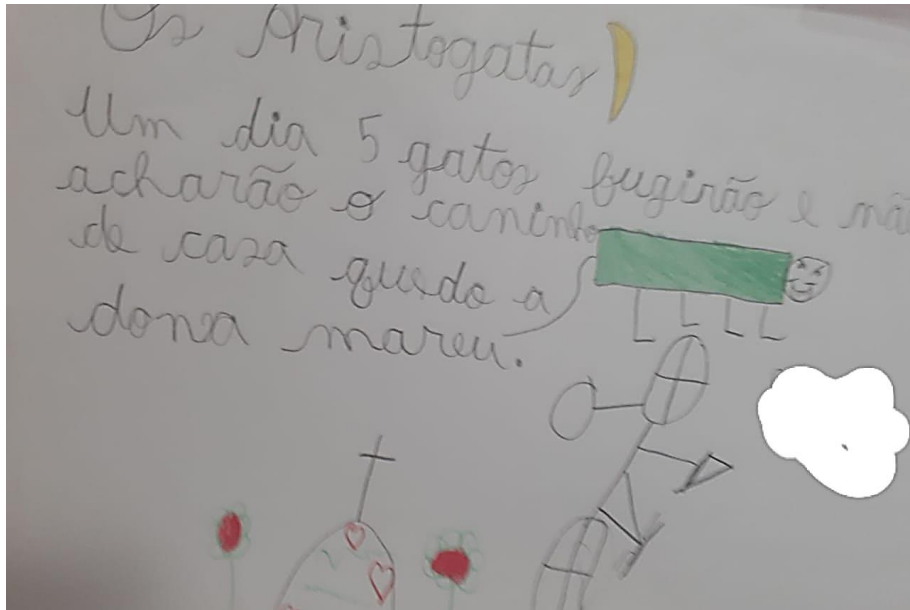 Os Aristogatas
Um dia 5 gatos fugirão e nã
acharão o caninho
de casa quedo a
dona mareu.